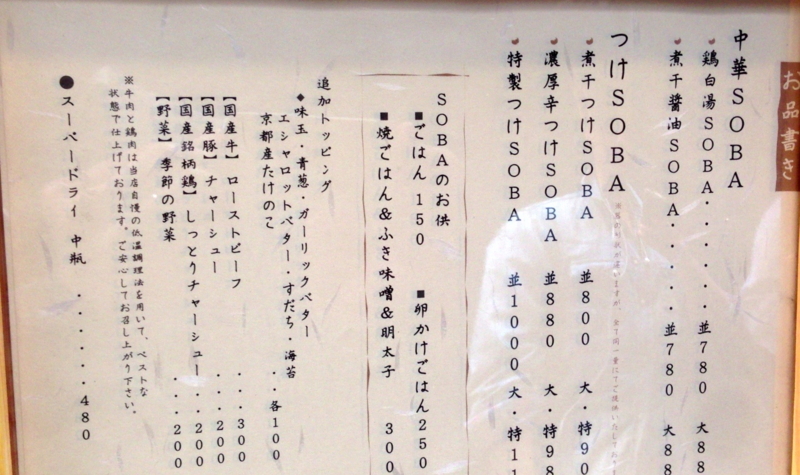 お品書き
中華SOBA
鶏白湯SOBA・・・・・・並780 大88
煮干醤油SOBA・・・・・並780 大88
つけSOBA
煮干つけSOBA 並800 大・特90
濃厚辛つけSOBA 並880 大・特98
特製つけSOBA 並1000 大・特11
SOBAのお供
■ごはん 150 ■卵かけごはん250
■焼ごはん&ふき味噌&明太子 300
追加トッピング
◆味玉・青葱・ガーリックバター
エシャロットバター・すだち・海苔
京都産たけのこ ・・各100
【国産牛】 ローストビーフ ・・・300
【国産豚】 チャーシュー ・・・200
【国産銘柄鶏】しっとりチャーシュー・・200
【野菜】 季節の野菜 ・・・200
※牛肉と鶏肉は当店自慢の低温調理法を用いて、ベストな
状態で仕上げております。ご安心してお召し上がり下さい。
●スーパードライ 中瓶 ・・・・・・480